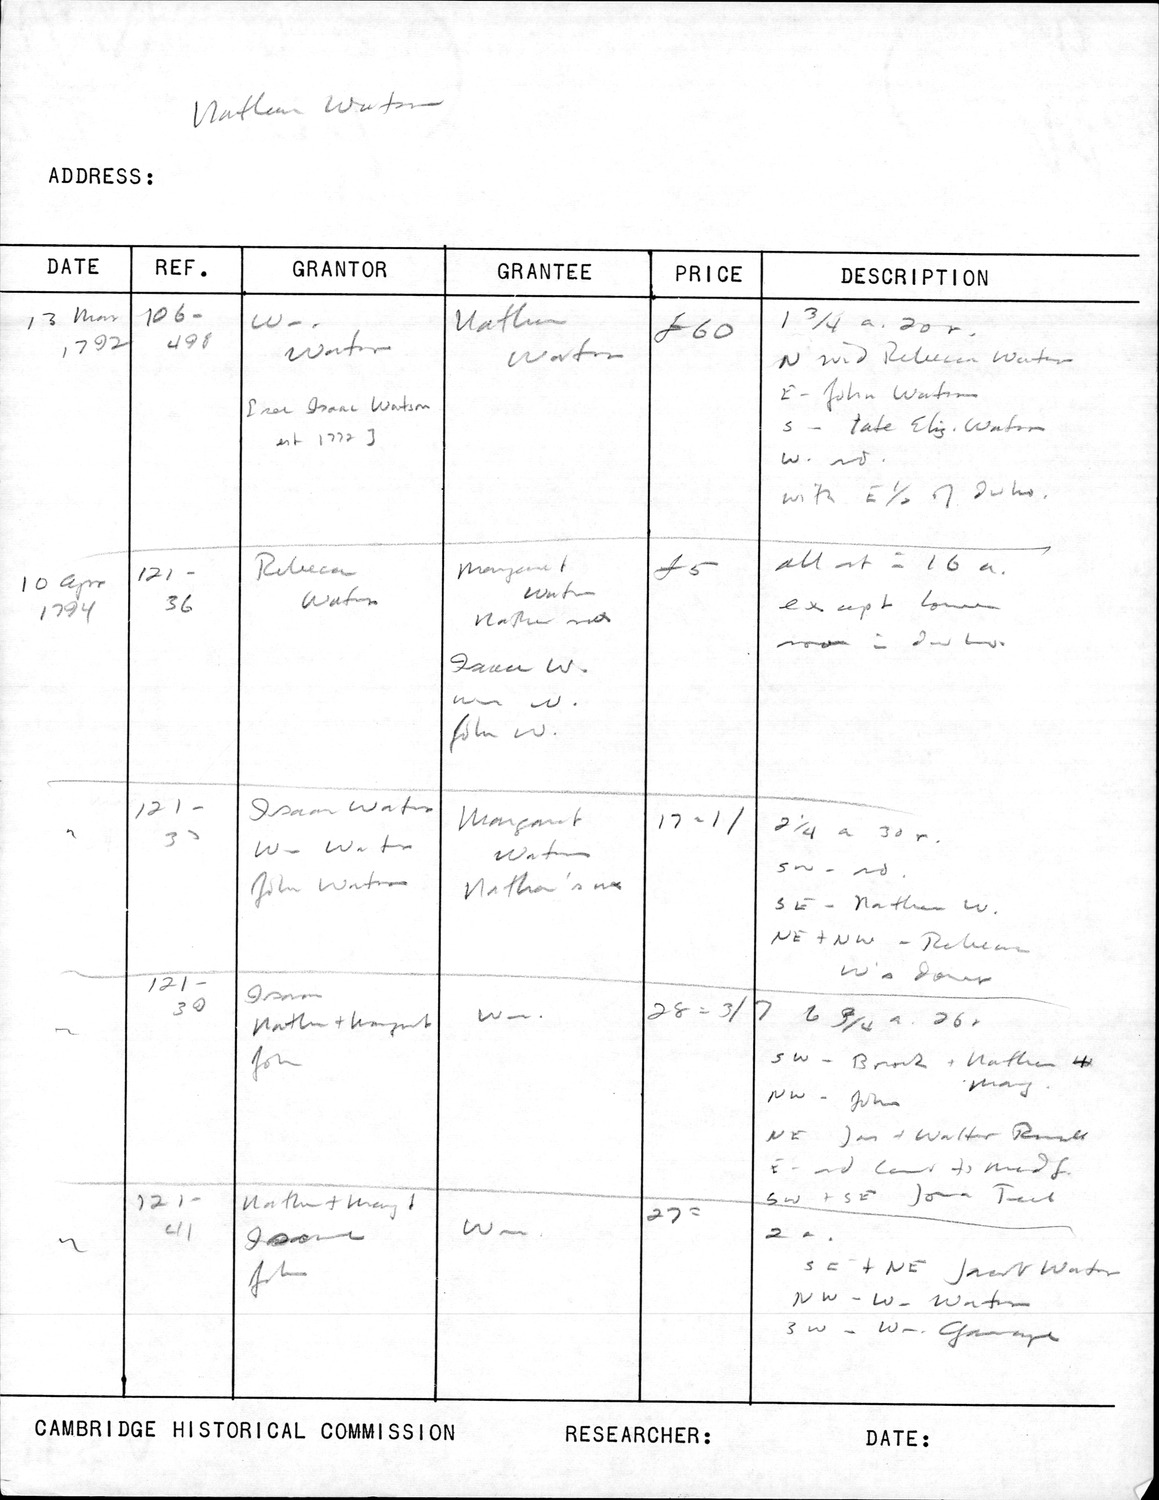 Nathan Watson
ADDRESS:
DATE REF. GRANTOR GRANTEE PRICE DESCRIPTION
13 Mar 1792
106-498
Wm. Watson
[see Isaac Watson
est 1772]
Nathan Watson
£60
1 3/4 a. 20 r.
N wid Rebecca Watson
E - John Watson
S - late Eliz. Watson
W. rd.
with E 1/2 of Dw ho.
10 Apr 1794
121-36
Rebecca Watson
Margaret Watson
Nathan
Isaac W.
Wm W.
John W.
£5
all int in 16 a.
except lower
room in Dw ho.
"
121-
Isaac Watson
Wm Watson
John Watson
Margaret Watson
Nathan's
17=1/
2 1/4 a 30 r.
SW - rd.
SE - Nathan W.
NE + NW - Rebecca
W's Dower
"
121-
Isaac
Nathan + Margaret
John
Wm.
28=3/7
6 3/4 a. 26 r
SW - Brook + Nathan +
Marg.
NW - John
NE Jas + Walter
E - rd
SW + SE Jona
"
121-41
Nathan + Marg't
Isaac
John
Wm.
27=
2 a.
SE + NE Jacob Watson
NW - Wm Watson
SW - Wm.
CAMBRIDGE HISTORICAL COMMISSION RESEARCHER: DATE: